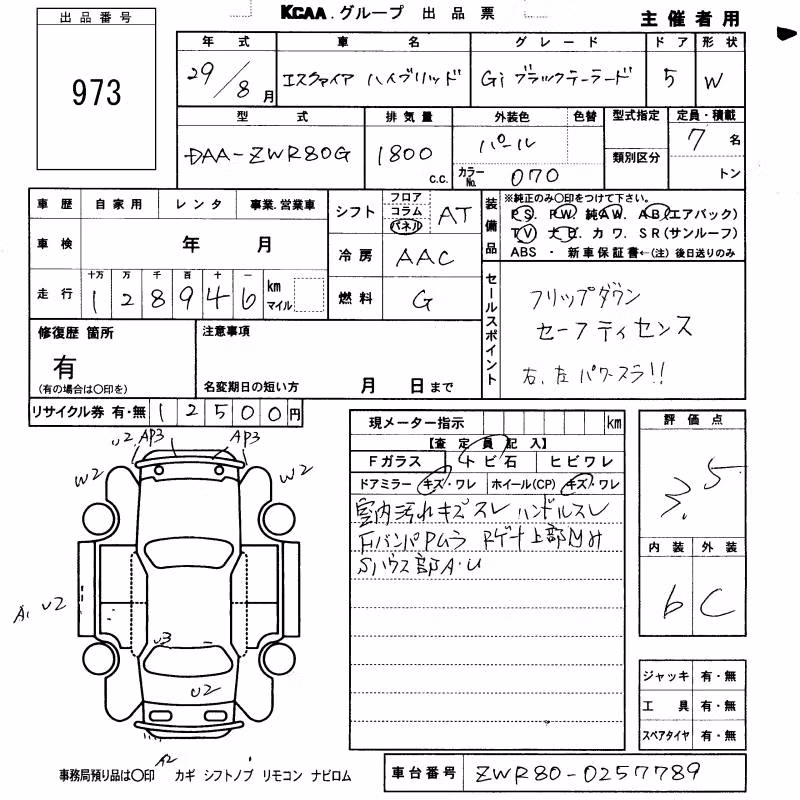 KCAA.グループ 出品票
主催者用
出品番号
973
年式 車名 グレード ドア 形状
29/8月 エスクァイア ハイブリッド Gi ブラックテーラード 5 W
型式 排気量 外装色 色替 型式指定 定員・積載
DAA-ZWR80G 1800c.c. パール 7名
カラーNo. 070 類別区分 トン
車歴 自家用 レンタ 事業.営業車
車検 年 月
走行 十万 万 千 百 十 一 km マイル
128946
シフト フロア コラム パネル AT
冷房 AAC
燃料 G
装備品 ※純正のみ○印をつけて下さい。
PS. PW. 純AW. AB(エアバック)
TV ナビ. カワ. SR(サンルーフ)
ABS ・ 新車保証書←(注) 後日送りのみ
セールスポイント
フリップダウン
セーフティセンス
右.左 パワースラ!!
修復歴 箇所
有
(有の場合は○印を)
注意事項
名変期日の短い方 月 日まで
リサイクル券 有・無 12500円
現メーター指示 km
【査定員記入】
Fガラス トビ石 ヒビワレ
ドアミラー キズ・ワレ ホイール(CP) キズ・ワレ
室内汚れキズスレ ハンドルスレ
FバンパPムラ Rゲート上部
Sハウス部A・U
評価点
3.5
内装 外装
6 C
U2 AP3 AP3
W2 W2
A1 U2
U3
U2
A2
ジャッキ 有・無
工具 有・無
スペアタイヤ 有・無
事務局預り品は○印 カギ シフトノブ リモコン ナビロム
車台番号 ZWR80-0257789